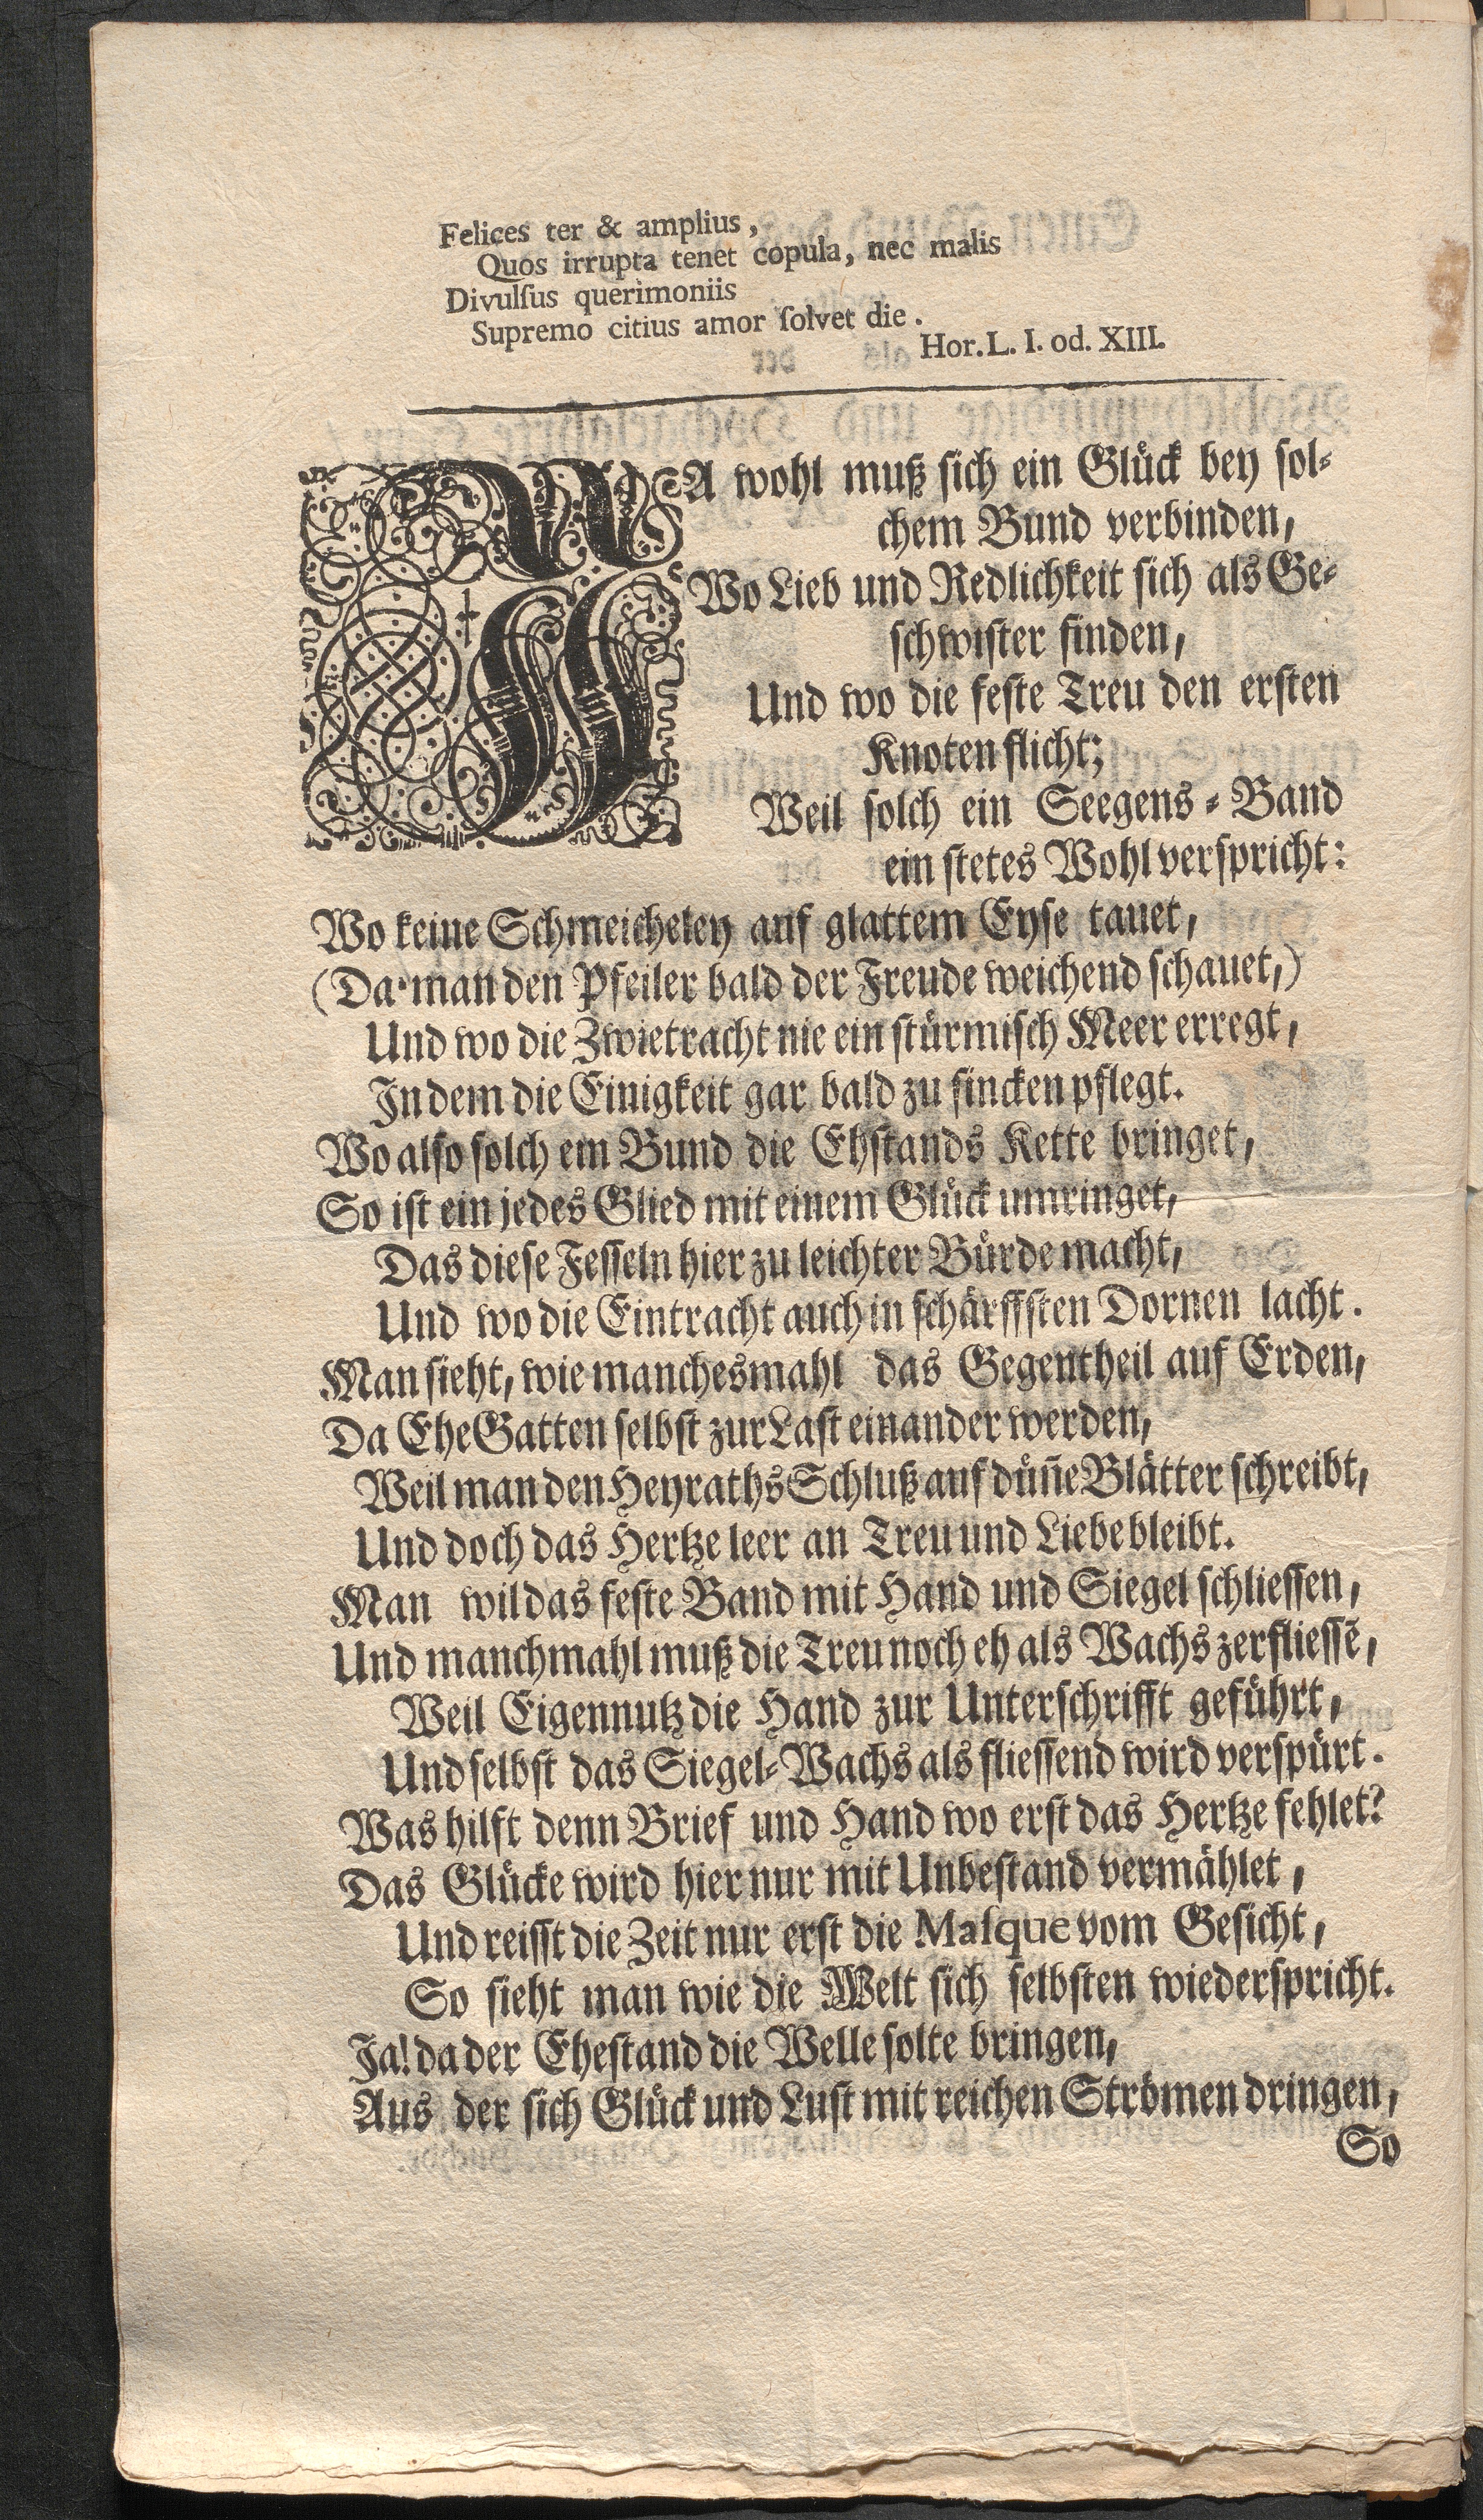 Felices ter & amplius,
Quos irrupta tenet copula, nec malis
Divulſus querimoniis
Supremo citius amor ſolvet die.
Hor. L. I. od. XIII.
JA wohl muß sich ein Glück bey sol-
chem Bund verbinden,
Wo Lieb und Redlichkeit sich als Ge-
schwister finden,
Und wo die feste Treu den ersten
Knoten flicht;
Weil solch ein Seegens-Band
ein stetes Wohl verspricht:
Wo keine Schmeicheley auf glattem Eyse tauet,
(Da man den Pfeiler bald der Freude weichend schauet,)
Und wo die Zwietracht nie ein stürmisch Meer erregt,
In dem die Einigkeit gar bald zu sincken pflegt.
Wo also solch ein Bund die Ehstands Kette bringet,
So ist ein jedes Glied mit einem Glück umringet,
Das diese Fesseln hier zu leichter Bürde macht,
Und wo die Eintracht auch in schärffsten Dornen lacht.
Man sieht, wie manchesmahl das Gegentheil auf Erden,
Da EheGatten selbst zur Last einander werden,
Weil man den HeyrathsSchluß auf düñe Blätter schreibt,
Und doch das Hertze leer an Treu und Liebe bleibt.
Man wil das feste Band mit Hand und Siegel schliessen,
Und manchmahl muß die Treu noch eh als Wachs zerfliessē,
Weil Eigennutz die Hand zur Unterschrifft geführt,
Und selbst das Siegel-Wachs als fliessend wird verspürt.
Was hilft denn Brief und Hand wo erst das Hertze fehlet?
Das Glücke wird hier nur mit Unbestand vermählet,
Und reisst die Zeit nur erst die Maſque vom Gesicht,
So sieht man wie die Welt sich selbsten wiederspricht.
Ja! da der Ehestand die Welle solte bringen,
Aus der sich Glück und Lust mit reichen Strömen dringen,
So